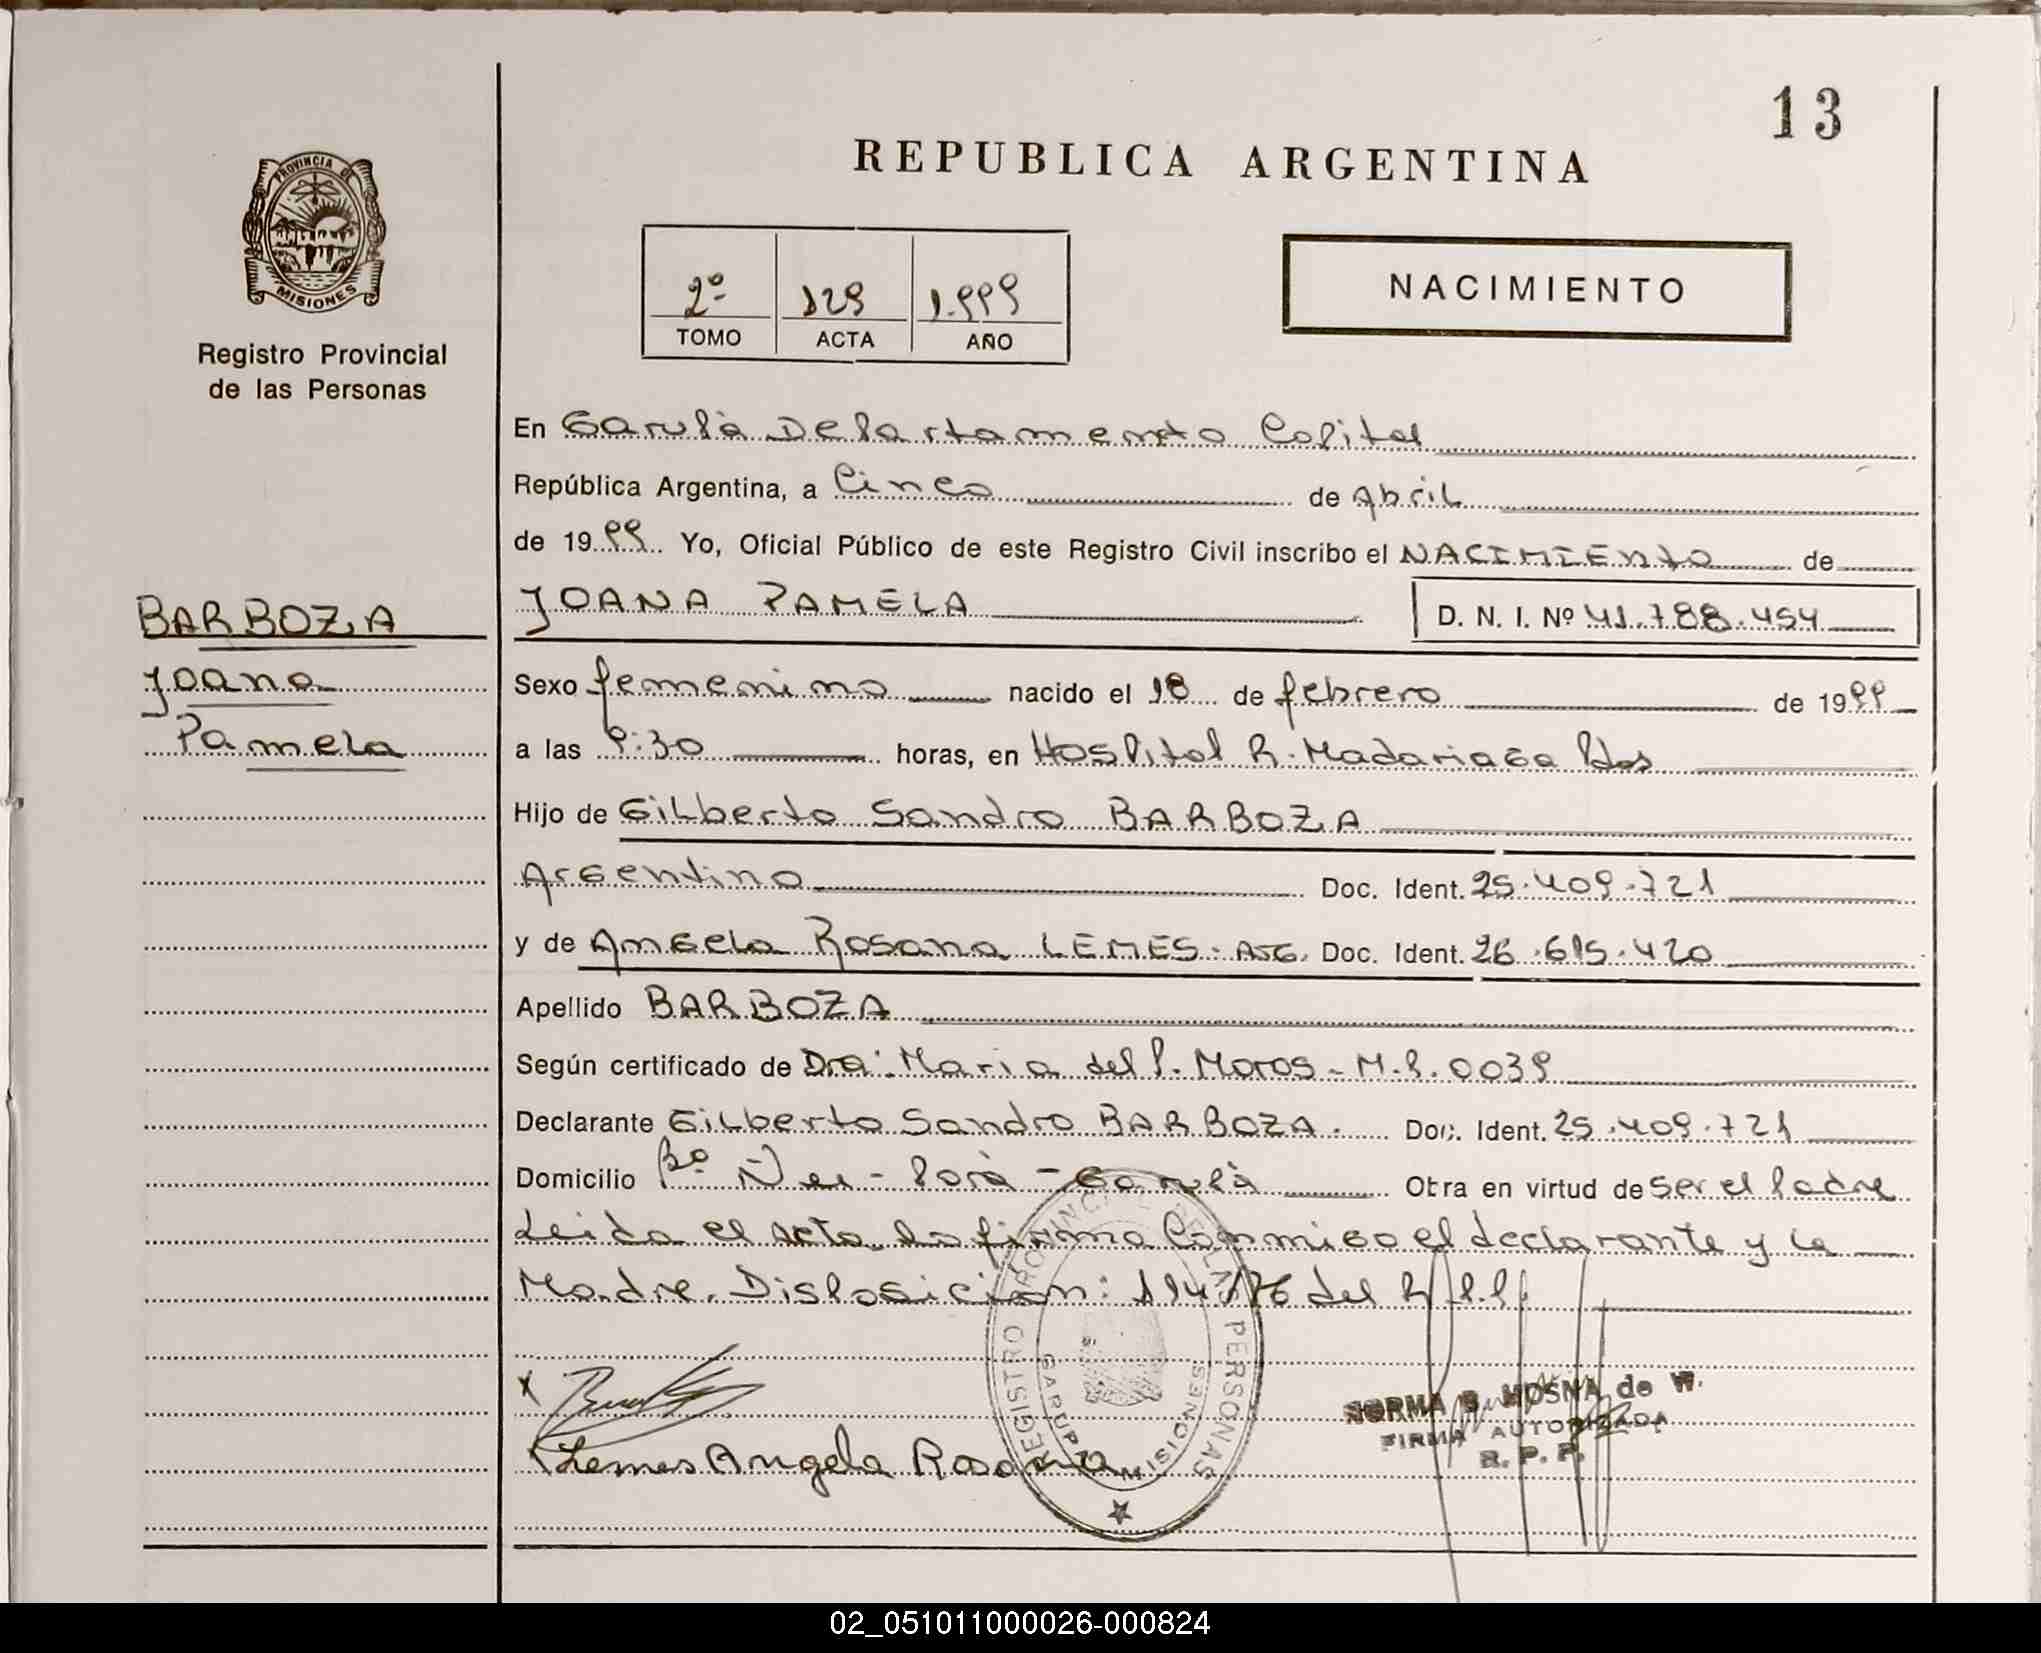 13
REPUBLICA ARGENTINA
PROVINCIA DE
MISIONES
Registro Provincial
de las Personas
2º 129 1.999
TOMO ACTA AÑO
NACIMIENTO
En Garupá Departamento Capital
República Argentina, a Cinco de Abril
de 1999 Yo, Oficial Público de este Registro Civil inscribo el NACIMIENTO de
JOANA PAMELA D. N. I. Nº 41.788.454
BARBOZA
Joana
Pamela
Sexo femenino nacido el 18 de febrero de 1999
a las 9:30 horas, en Hospital R. Madariaga Pdas
Hijo de Gilberto Sandro BARBOZA
Argentino Doc. Ident. 25.409.721
y de Angela Rosana LEMES. Doc. Ident. 26.615.420
Apellido BARBOZA
Según certificado de Dra. Maria del P. Moros - M.P. 0039
Declarante Gilberto Sandro BARBOZA. Doc. Ident. 25.409.721
Domicilio Bº Ñu - Porá - Garupá Obra en virtud de ser el Padre
Leida el acta, la firma Conmigo el declarante y la
Madre. Disposición: 114/76 del R.P.P.
Lemes Angela Rosana
REGISTRO PROVINCIAL DE LAS PERSONAS
GARUPA MISIONES
NORMA B. MOSNA de W.
FIRMA AUTORIZADA
R. P. P.
02_051011000026-000824